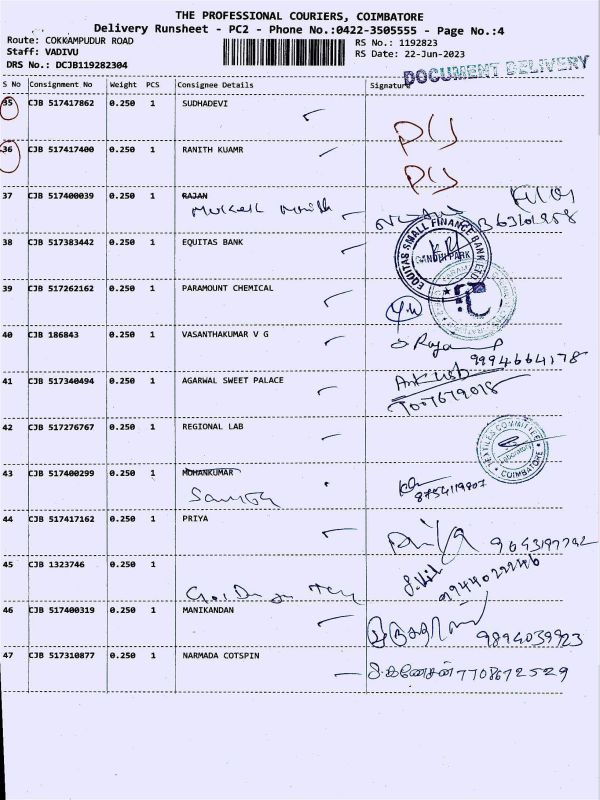 THE PROFESSIONAL COURIERS, COIMBATORE
Delivery Runsheet - PC2 - Phone No.:0422-3505555 - Page No.:4
Route: COKKAMPUDUR ROAD
RS No.: 1192823
Staff: VADIVU
RS Date: 22-Jun-2023
DRS No.: DCJB119282304
DOCUMENT DELIVERY
S No Consignment No Weight PCS Consignee Details Signature
35 CJB 517417862 0.250 1 SUDHADEVI
36 CJB 517417400 0.250 1 RANITH KUAMR
37 CJB 517400039 0.250 1 RAJAN
38 CJB 517383442 0.250 1 EQUITAS BANK
EQUITAS SMALL FINANCE BANK LTD
GANDHI PARK
39 CJB 517262162 0.250 1 PARAMOUNT CHEMICAL
40 CJB 186843 0.250 1 VASANTHAKUMAR V G
9994664178
41 CJB 517340494 0.250 1 AGARWAL SWEET PALACE
42 CJB 517276767 0.250 1 REGIONAL LAB
TEXTILES COMMITTEE
Laboratory
COIMBATORE
43 CJB 517400299 0.250 1 MOHANKUMAR
44 CJB 517417162 0.250 1 PRIYA
Priya
45 CJB 1323746 0.250 1
46 CJB 517400319 0.250 1 MANIKANDAN
9894039923
47 CJB 517310877 0.250 1 NARMADA COTSPIN
7708672529